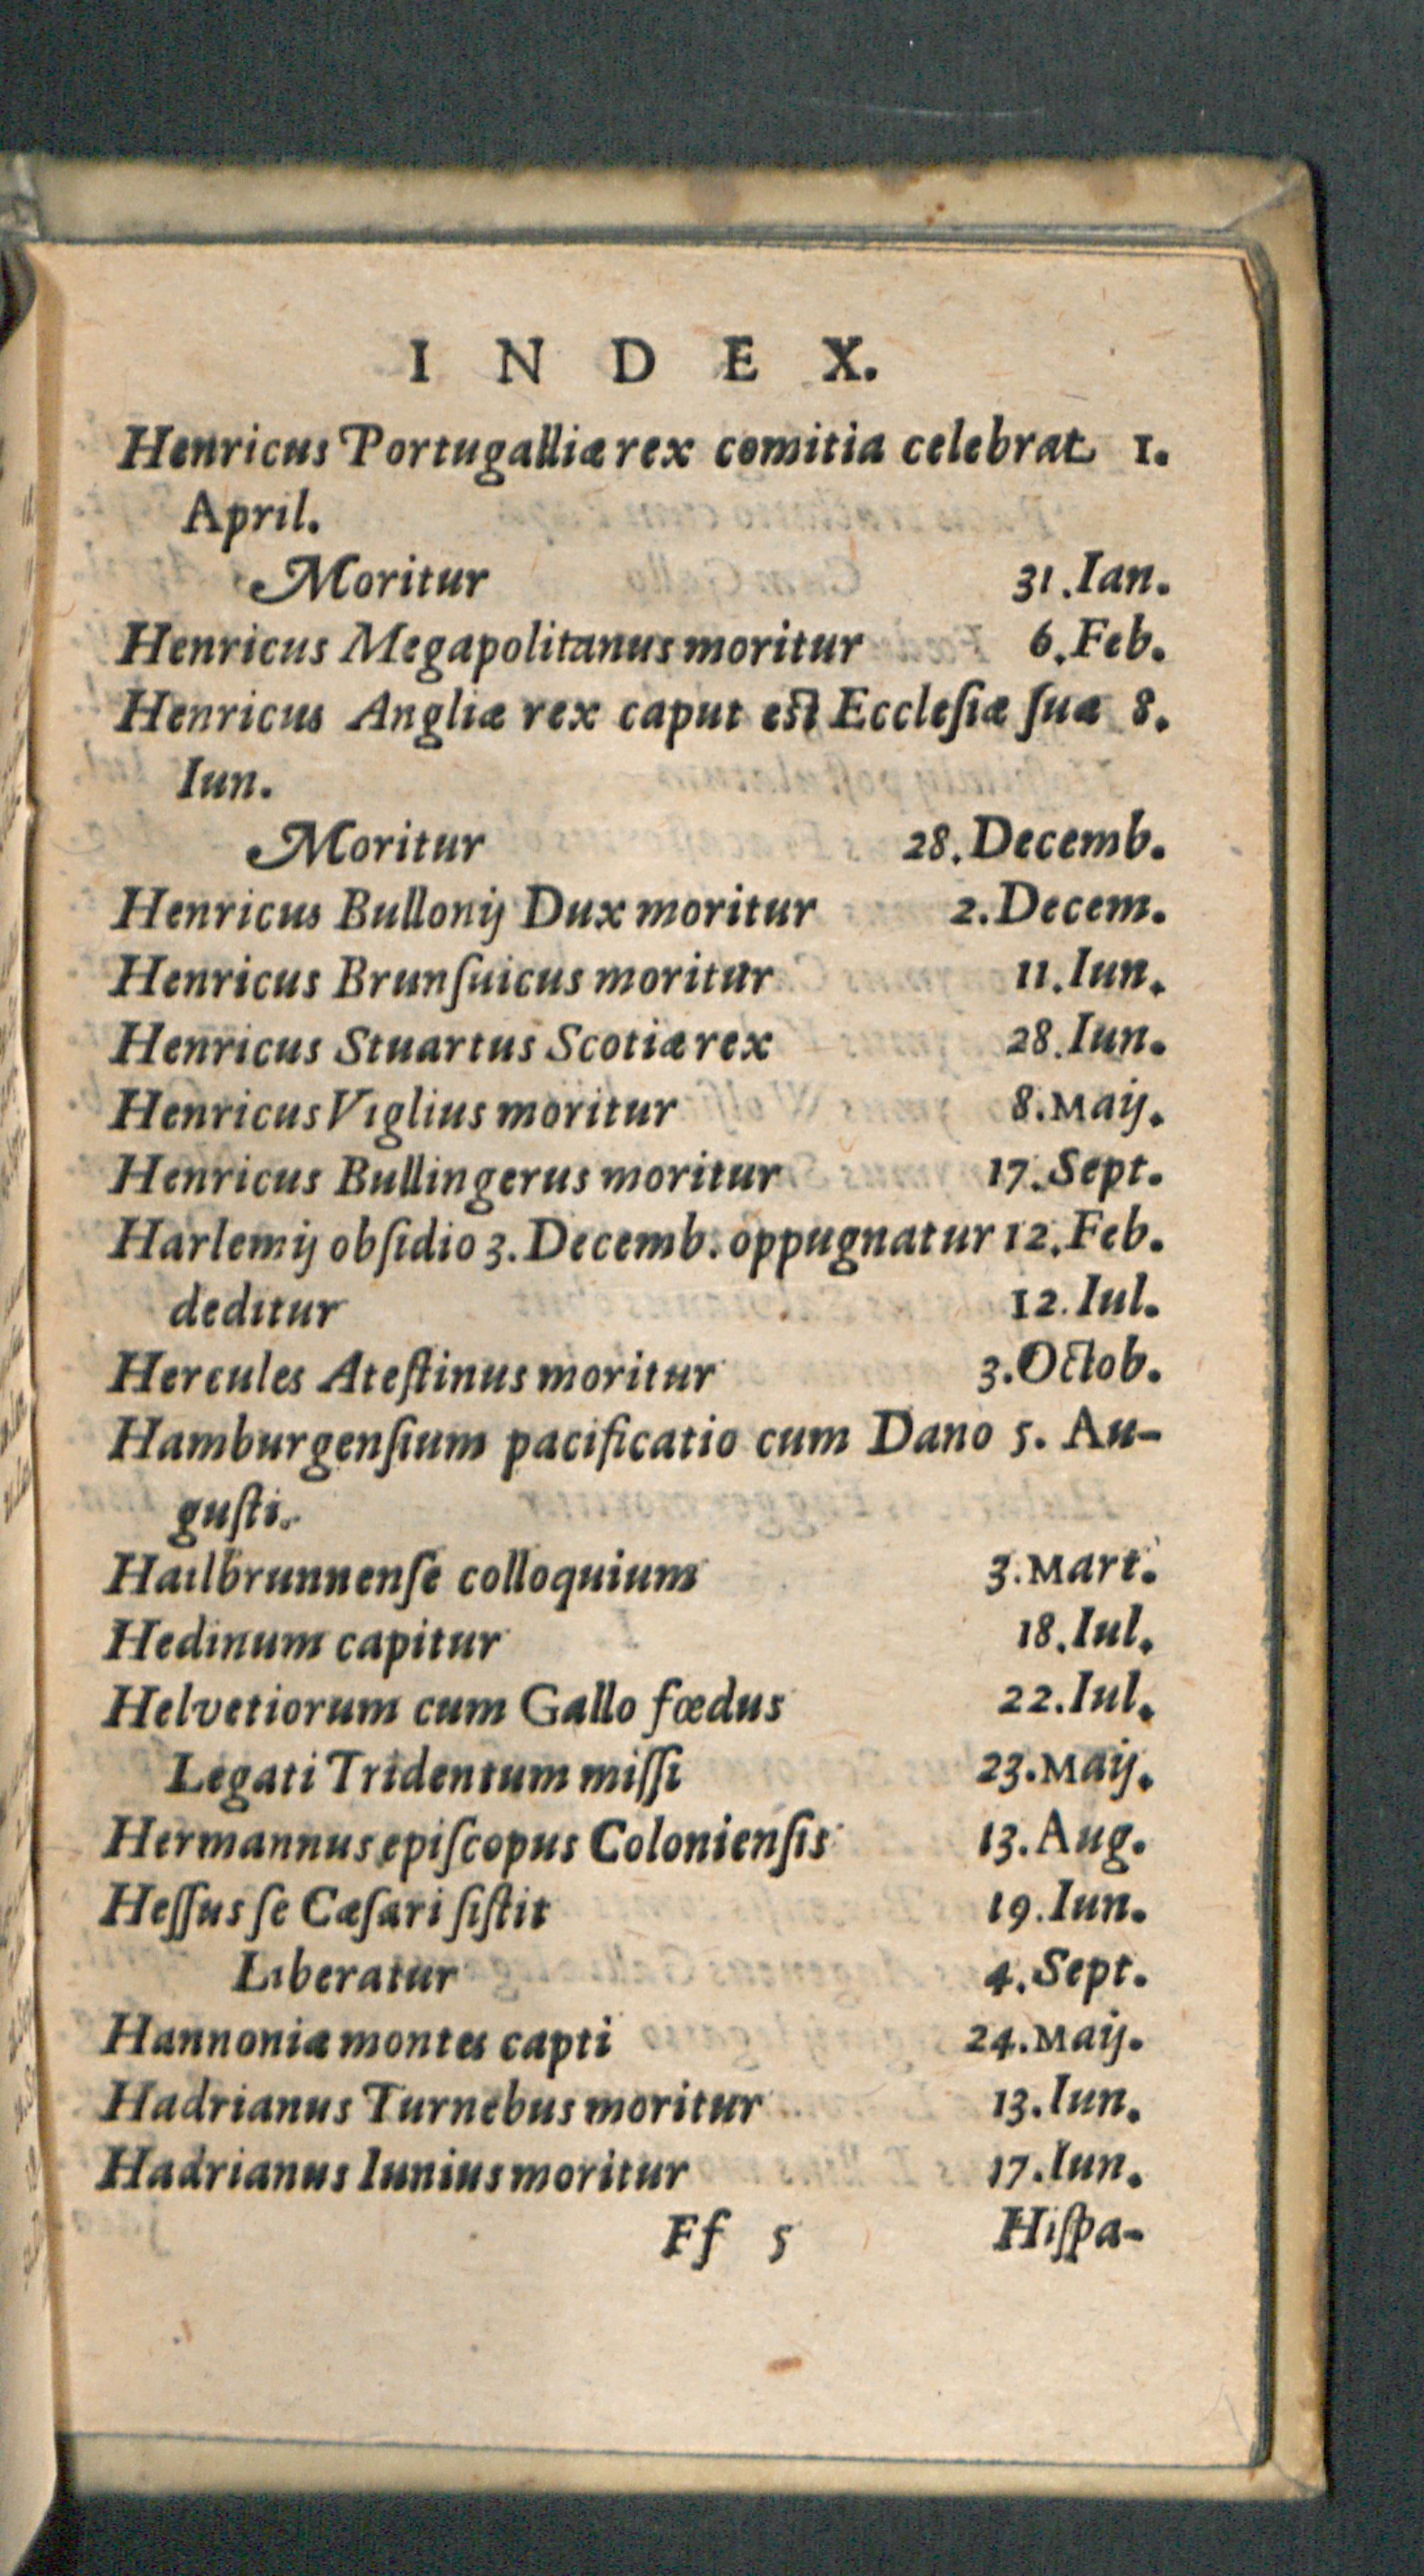 INDEX.
Henricus Portugalliæ rex comitia celebrat 1.
April.
Moritur 31. Ian.
Henricus Megapolitanus moritur 6. Feb.
Henricus Angliæ rex caput est Ecclesiæ suæ 8.
Iun.
Moritur 28. Decemb.
Henricus Bullonij Dux moritur 2. Decem.
Henricus Brunſuicus moritur 11. Iun.
Henricus Stuartus Scotiæ rex 28. Iun.
Henricus Viglius moritur 8. Maij.
Henricus Bullingerus moritur 17. Sept.
Harlemij obſidio 3. Decemb. oppugnatur 12. Feb.
deditur 12. Iul.
Hercules Ateſtinus moritur 3. Octob.
Hamburgenſium pacificatio cum Dano 5. Au-
guſti.
Hailbrunnenſe colloquium 3. Mart.
Hedinum capitur 18. Iul.
Helvetiorum cum Gallo fœdus 22. Iul.
Legati Tridentum miſſi 23. Maij.
Hermannus epiſcopus Colonienſis 13. Aug.
Heſſus ſe Cæſari ſiſtit 19. Iun.
Liberatur 4. Sept.
Hannoniæ montes capti 24. Maij.
Hadrianus Turnebus moritur 13. Iun.
Hadrianus Iunius moritur 17. Iun.
Ff 5 Hiſpa-